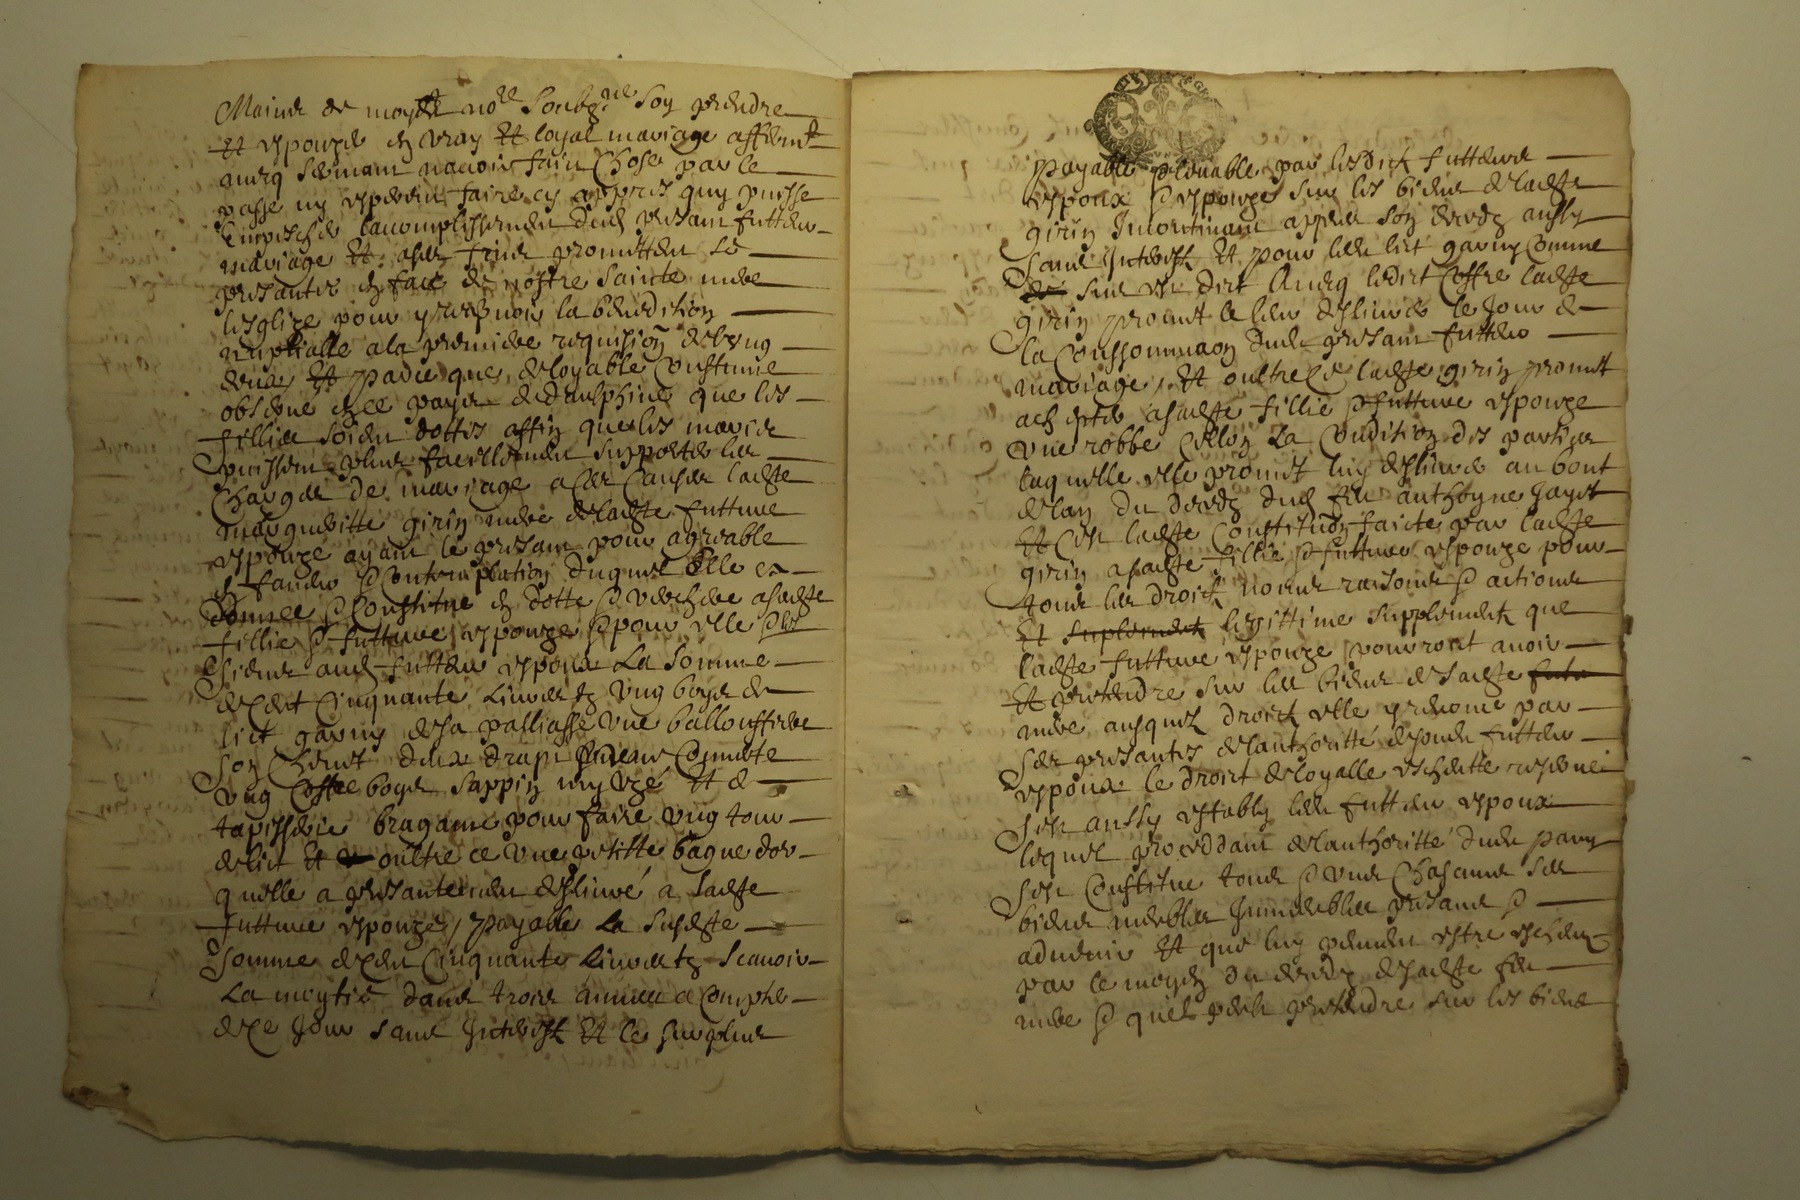 Mains de moydt nore soubzne soy prendre
Et espouze en vray Et loyal mariage affirmt
navoir faict chose par le
passe ny esperer faire cy appres quy puisse
lacomplissement dud present futteur
mariage Et promettent se
presanter en face de nostre saincte mere
lesglize pour y recepvoir la benedition
nuptialle a la premiere requision de lung
deux Et parce que de loyable coustume
observe en ce payis de daulphine que les
fillies soient dottes affin que les maris
puissent plus facillement supporter les
charges de mariage a ces causes ladte
margueritte girin mere de ladte futture
espouze ayant le presant pour agreable
En faveur & contemplation duquel Elle a
donnee & constitue en dotte & verchere a sadte
fillie & futture espouze & pour elle
aud futteur espoux La somme
de cent cinquante Livres tz ung boys de
lict garny de sa palliasse une ballouffiere
son chevet deux draps
ung coffre boys sappin uzé Et de
tapisserie bragame pour faire ung tour
de lict Et oultre ce une petitte bague dor
quelle a presantement deslivré a sadte
futture espouze, payable La susdte
somme de cent cinquante Livres tz scavoir
La moytié dans trois annees a compter
de ce jour sans interest Et le surplus
payable par lesdict futteurs
espoux & espouze sur les biens de ladte
girin Incontinant appres son decedz aussy
sans interest Et pour les lict garny comme
sus est dict ledict coffre ladte
girin promet le leur deslivrer le jour de
la conssommaon dud presant futteur
mariage, Et oultre ce ladte girin promet
achepter a sadte fillie & futture espouze
une robbe sellon La condition des parties
laquelle elle promet luy deslivrer au bout
de lan du decedz dud feu anthoyne
Et cest ladte constituon faicte par ladte
girin a sadte fillie & futture espouze pour
tous les droict noms raisons & actions
Et suplement legittime supplement que
ladte futture espouze pourroict avoir
Et pretendre sur les biens de sadte
mere ausquelz droict elle renonce par
ses presantes de lauthoritté de sondt futteur
espoux le droict de loyalle escheutte reserve
sest aussy estably led futteur espoux
lequel proceddant de lauthoritté dudt
sest constitue tous & uns chascuns ses
biens meubles immeubles presans &
advenir Et que luy peuvent estre escheuz
par le moyen du decedz de sadte feu
mere & quel peult pretendre sur les biens